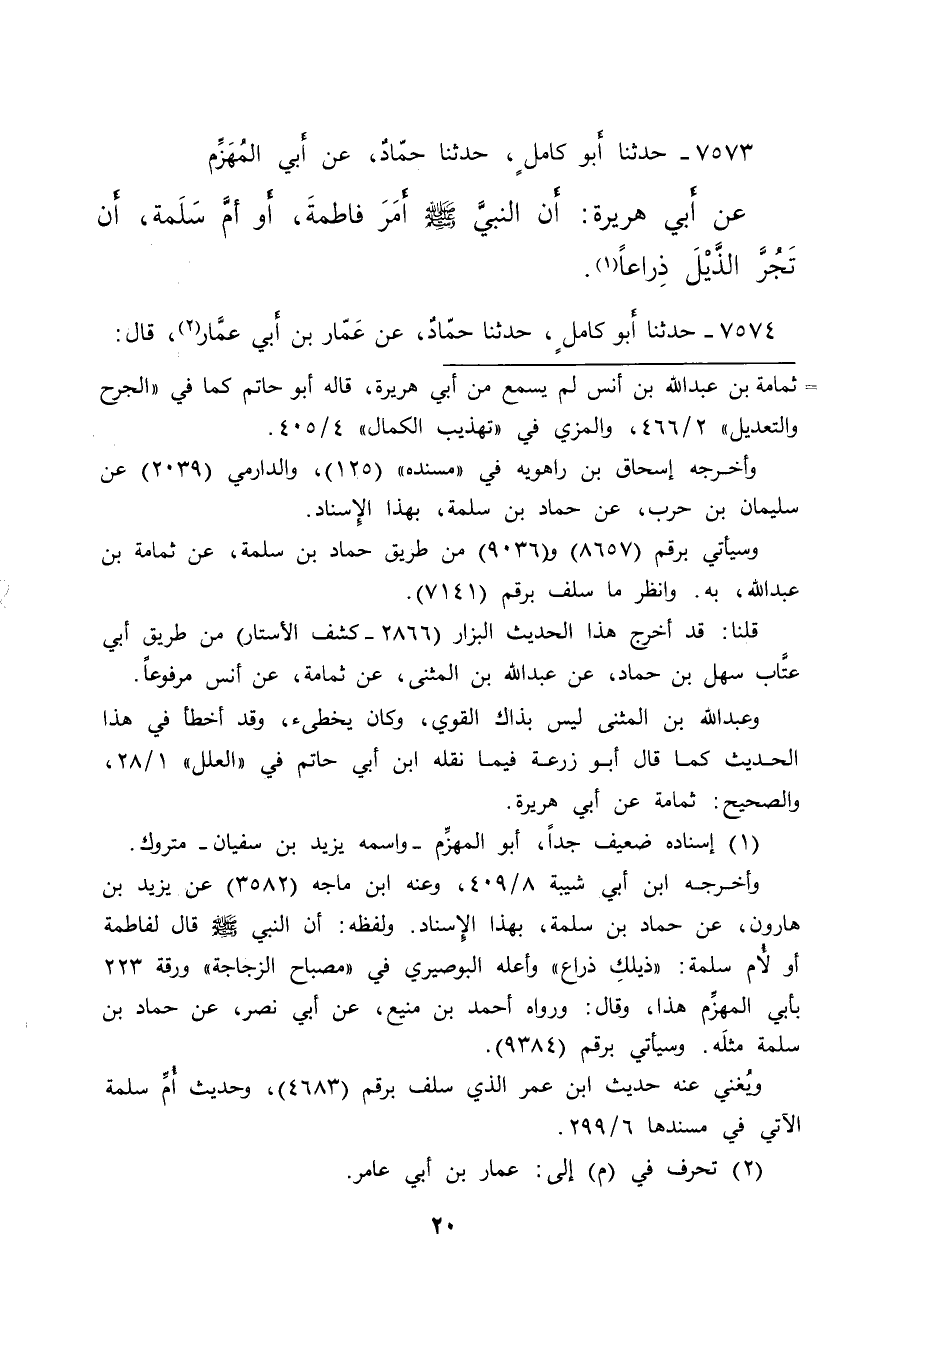 ٧٥٧٣ - حدثنا أَبو كاملٍ، حدثنا حمّادٌ، عن أَبي المُهَزِّم
عن أَبي هريرة: أَن النبيَّ ﷺ أَمَرَ فاطمةَ، أَو أمَّ سَلَمة، أَن
تَجُرَّ الذَّيْلَ ذِراعاً(١).
٧٥٧٤ - حدثنا أَبو كاملٍ، حدثنا حمّادٌ، عن عَمّار بن أَبي عمَّار(٢)، قال:
= ثمامة بن عبدالله بن أنس لم يسمع من أبي هريرة، قاله أبو حاتم كما في «الجرح
والتعديل» ٤٦٦/٢، والمزي في «تهذيب الكمال» ٤٠٥/٤.
وأخرجه إسحاق بن راهويه في «مسنده» (١٢٥)، والدارمي (٢٠٣٩) عن
سليمان بن حرب، عن حماد بن سلمة، بهذا الإِسناد.
وسيأتي برقم (٨٦٥٧) و(٩٠٣٦) من طريق حماد بن سلمة، عن ثمامة بن
عبدالله، به. وانظر ما سلف برقم (٧١٤١).
قلنا: قد أخرج هذا الحديث البزار (٢٨٦٦ - كشف الأستار) من طريق أبي
عتَّاب سهل بن حماد، عن عبدالله بن المثنى، عن ثمامة، عن أنس مرفوعاً.
وعبدالله بن المثنى ليس بذاك القوي، وكان يخطىء، وقد أخطأ في هذا
الحديث كما قال أبو زرعة فيما نقله ابن أبي حاتم في «العلل» ٢٨/١،
والصحيح: ثمامة عن أبي هريرة.
(١) إسناده ضعيف جداً، أبو المهزِّم - واسمه يزيد بن سفيان - متروك.
وأخرجه ابن أبي شيبة ٤٠٩/٨، وعنه ابن ماجه (٣٥٨٢) عن يزيد بن
هارون، عن حماد بن سلمة، بهذا الإِسناد. ولفظه: أن النبي ﷺ قال لفاطمة
أو لأُم سلمة: «ذيلكِ ذراع» وأعله البوصيري في «مصباح الزجاجة» ورقة ٢٢٣
بأبي المهزِّم هذا، وقال: ورواه أحمد بن منيع، عن أبي نصر، عن حماد بن
سلمة مثلَه. وسيأتي برقم (٩٣٨٤).
ويُغني عنه حديث ابن عمر الذي سلف برقم (٤٦٨٣)، وحديث أُمِّ سلمة
الآتي في مسندها ٢٩٩/٦.
(٢) تحرف في (م) إلى: عمار بن أبي عامر.
٢٠